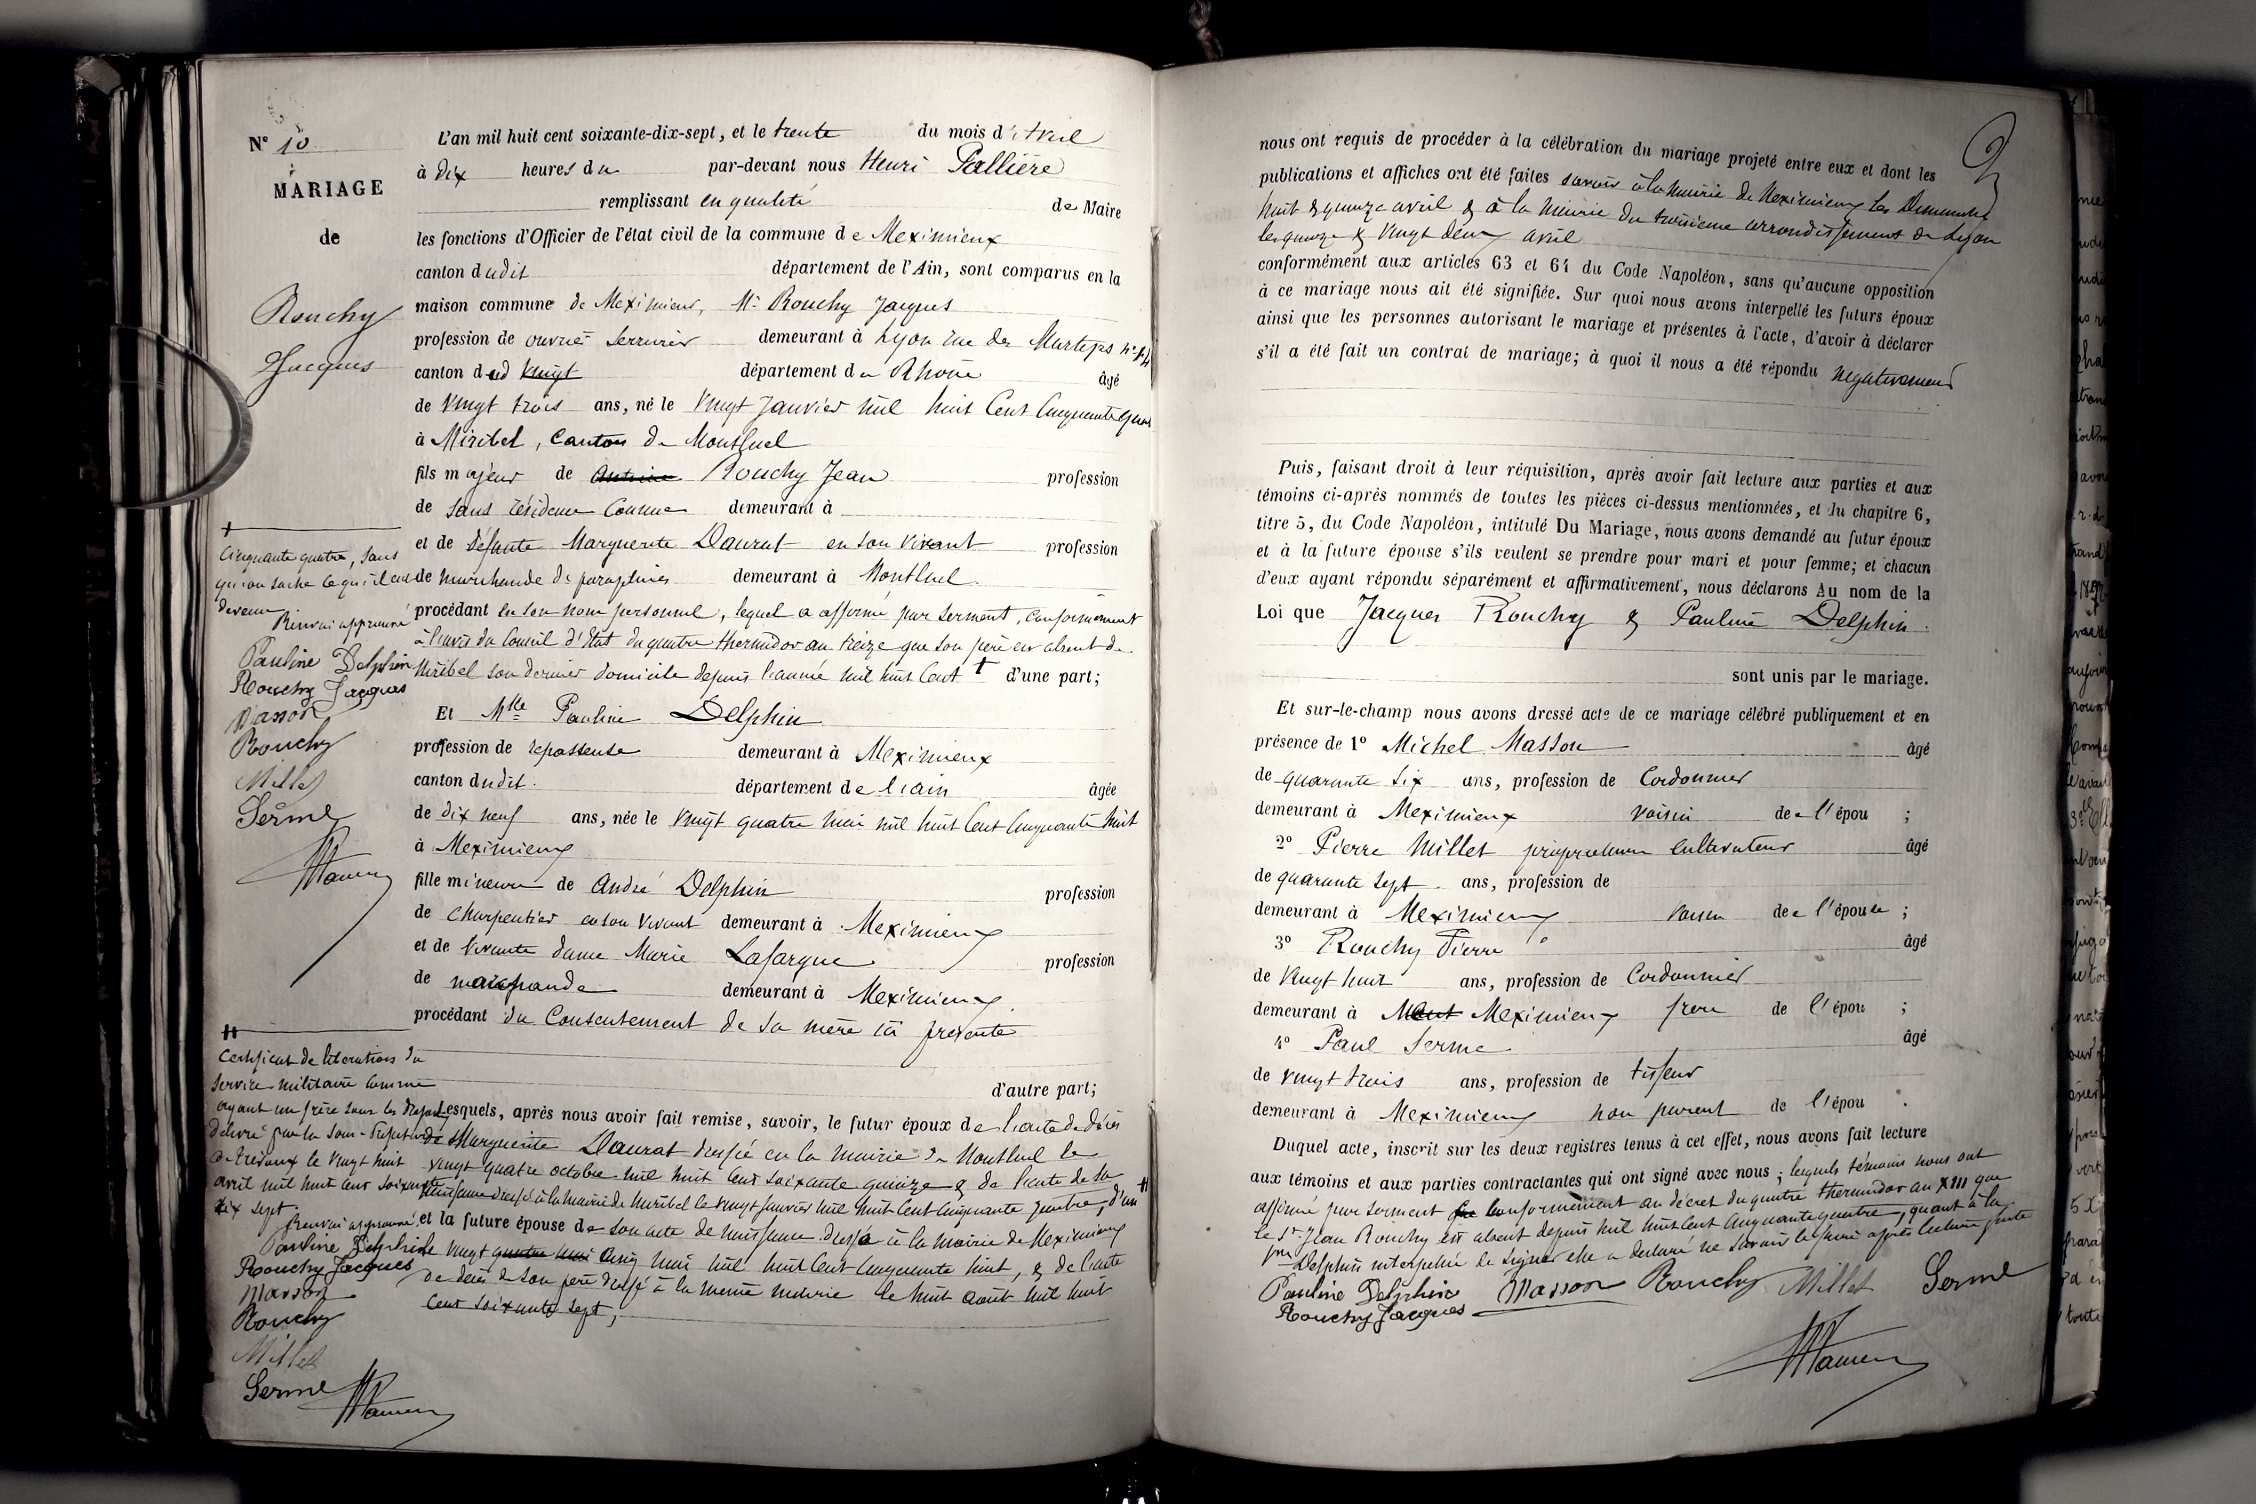 N° 10
MARIAGE
de
Rouchy
Jacques
L'an mil huit cent soixante-dix-sept, et le trente du mois d'Avril
à dix heures du par-devant nous Henri Pallière
remplissant en qualité de Maire
les fonctions d'Officier de l'état civil de la commune de Meximieux
canton dudit département de l'Ain, sont comparus en la
maison commune de Meximieux, Mr Rouchy Jacques
profession de ouvrier serrurier demeurant à Lyon rue des Martyrs n°
canton dud vingt département du Rhône âgé
de vingt trois ans, né le vingt Janvier mil huit cent cinquante quatre
à Miribel, canton de Montluel
fils majeur de Antoine Rouchy Jean profession
de sans résidence connue demeurant à
et de défunte Marguerite Daurat en son vivant profession
de marchande de parapluies demeurant à Montluel
procédant en son nom personnel, lequel a affirmé par serment, conformément
à l'avis du Conseil d'Etat du quatre thermidor an treize que son père est absent de
Miribel son dernier domicile depuis l'année mil huit cent + d'une part;
+
cinquante quatre, sans
qu'on sache ce qu'il est
devenu
Renvoi approuvé
Pauline Delphin
Rouchy Jacques
Masson
Rouchy
Millet
Serme
Et Mlle Pauline Delphin
profession de repasseuse demeurant à Meximieux
canton dudit département de l'ain âgée
de dix neuf ans, née le vingt quatre mai mil huit cent cinquante huit
à Meximieux
fille mineure de André Delphin profession
de charpentier en son vivant demeurant à Meximieux
et de vivante dame Marie Lafargue profession
de marchande demeurant à Meximieux
procédant du consentement de sa mère ici présente
d'autre part;
Lesquels, après nous avoir fait remise, savoir, le futur époux de l'acte de décès
de Marguerite Daurat dressé en la mairie de Montluel le
vingt quatre octobre mil huit cent soixante quinze & de l'acte de sa
naissance dressé à la mairie de Miribel le vingt Janvier mil huit cent cinquante quatre, d'un ++
et la future épouse de son acte de naissance dressé à la mairie de Meximieux
le vingt quatre mai cinq mai mil huit cent cinquante huit, & de l'acte
de décès de son père dressé à la même mairie le huit août mil huit
cent soixante sept,
++
certificat de libération du
service militaire comme
ayant un frère sous les drapeaux
délivré par la Sous-Préfecture
de Trévoux le vingt huit
avril mil huit cent soixante
dix sept
Renvoi approuvé
Pauline Delphin
Rouchy Jacques
Masson
Rouchy
Millet
Serme
nous ont requis de procéder à la célébration du mariage projeté entre eux et dont les
publications et affiches ont été faites savoir à la mairie de Meximieux les Dimanches
huit & quinze avril & à la mairie du troisième arrondissement de Lyon
les quinze & vingt deux avril
conformément aux articles 63 et 64 du Code Napoléon, sans qu'aucune opposition
à ce mariage nous ait été signifiée. Sur quoi nous avons interpellé les futurs époux
ainsi que les personnes autorisant le mariage et présentes à l'acte, d'avoir à déclarer
s'il a été fait un contrat de mariage; à quoi il nous a été répondu négativement
Puis, faisant droit à leur réquisition, après avoir fait lecture aux parties et aux
témoins ci-après nommés de toutes les pièces ci-dessus mentionnées, et du chapitre 6,
titre 5, du Code Napoléon, intitulé Du Mariage, nous avons demandé au futur époux
et à la future épouse s'ils veulent se prendre pour mari et pour femme; et chacun
d'eux ayant répondu séparément et affirmativement, nous déclarons Au nom de la
Loi que Jacques Rouchy & Pauline Delphin
sont unis par le mariage.
Et sur-le-champ nous avons dressé acte de ce mariage célébré publiquement et en
présence de 1° Michel Masson âgé
de quarante six ans, profession de Cordonnier
demeurant à Meximieux voisin de l'épou ;
2° Pierre Millet propriétaire cultivateur âgé
de quarante sept ans, profession de
demeurant à Meximieux voisin de l'épouse ;
3° Rouchy Pierre âgé
de vingt huit ans, profession de Cordonnier
demeurant à Meximieux frère de l'épou ;
4° Paul Serme âgé
de vingt trois ans, profession de tisseur
demeurant à Meximieux non parent de l'épou .
Duquel acte, inscrit sur les deux registres tenus à cet effet, nous avons fait lecture
aux témoins et aux parties contractantes qui ont signé avec nous ; lesquels témoins nous ont
affirmé par serment conformément au décret du quatre thermidor an XIII que
le Sr Jean Rouchy est absent depuis mil huit cent cinquante quatre, quant à la
Delphin interpellée de signer elle a déclaré ne savoir le faire après lecture faite
Pauline Delphin Masson Rouchy Millet Serme
Rouchy Jacques